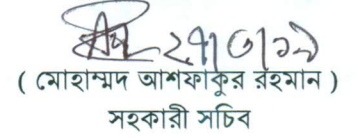 ২৭/৩/১৯
( মোহাম্মদ আশফাকুর রহমান )
সহকারী সচিব